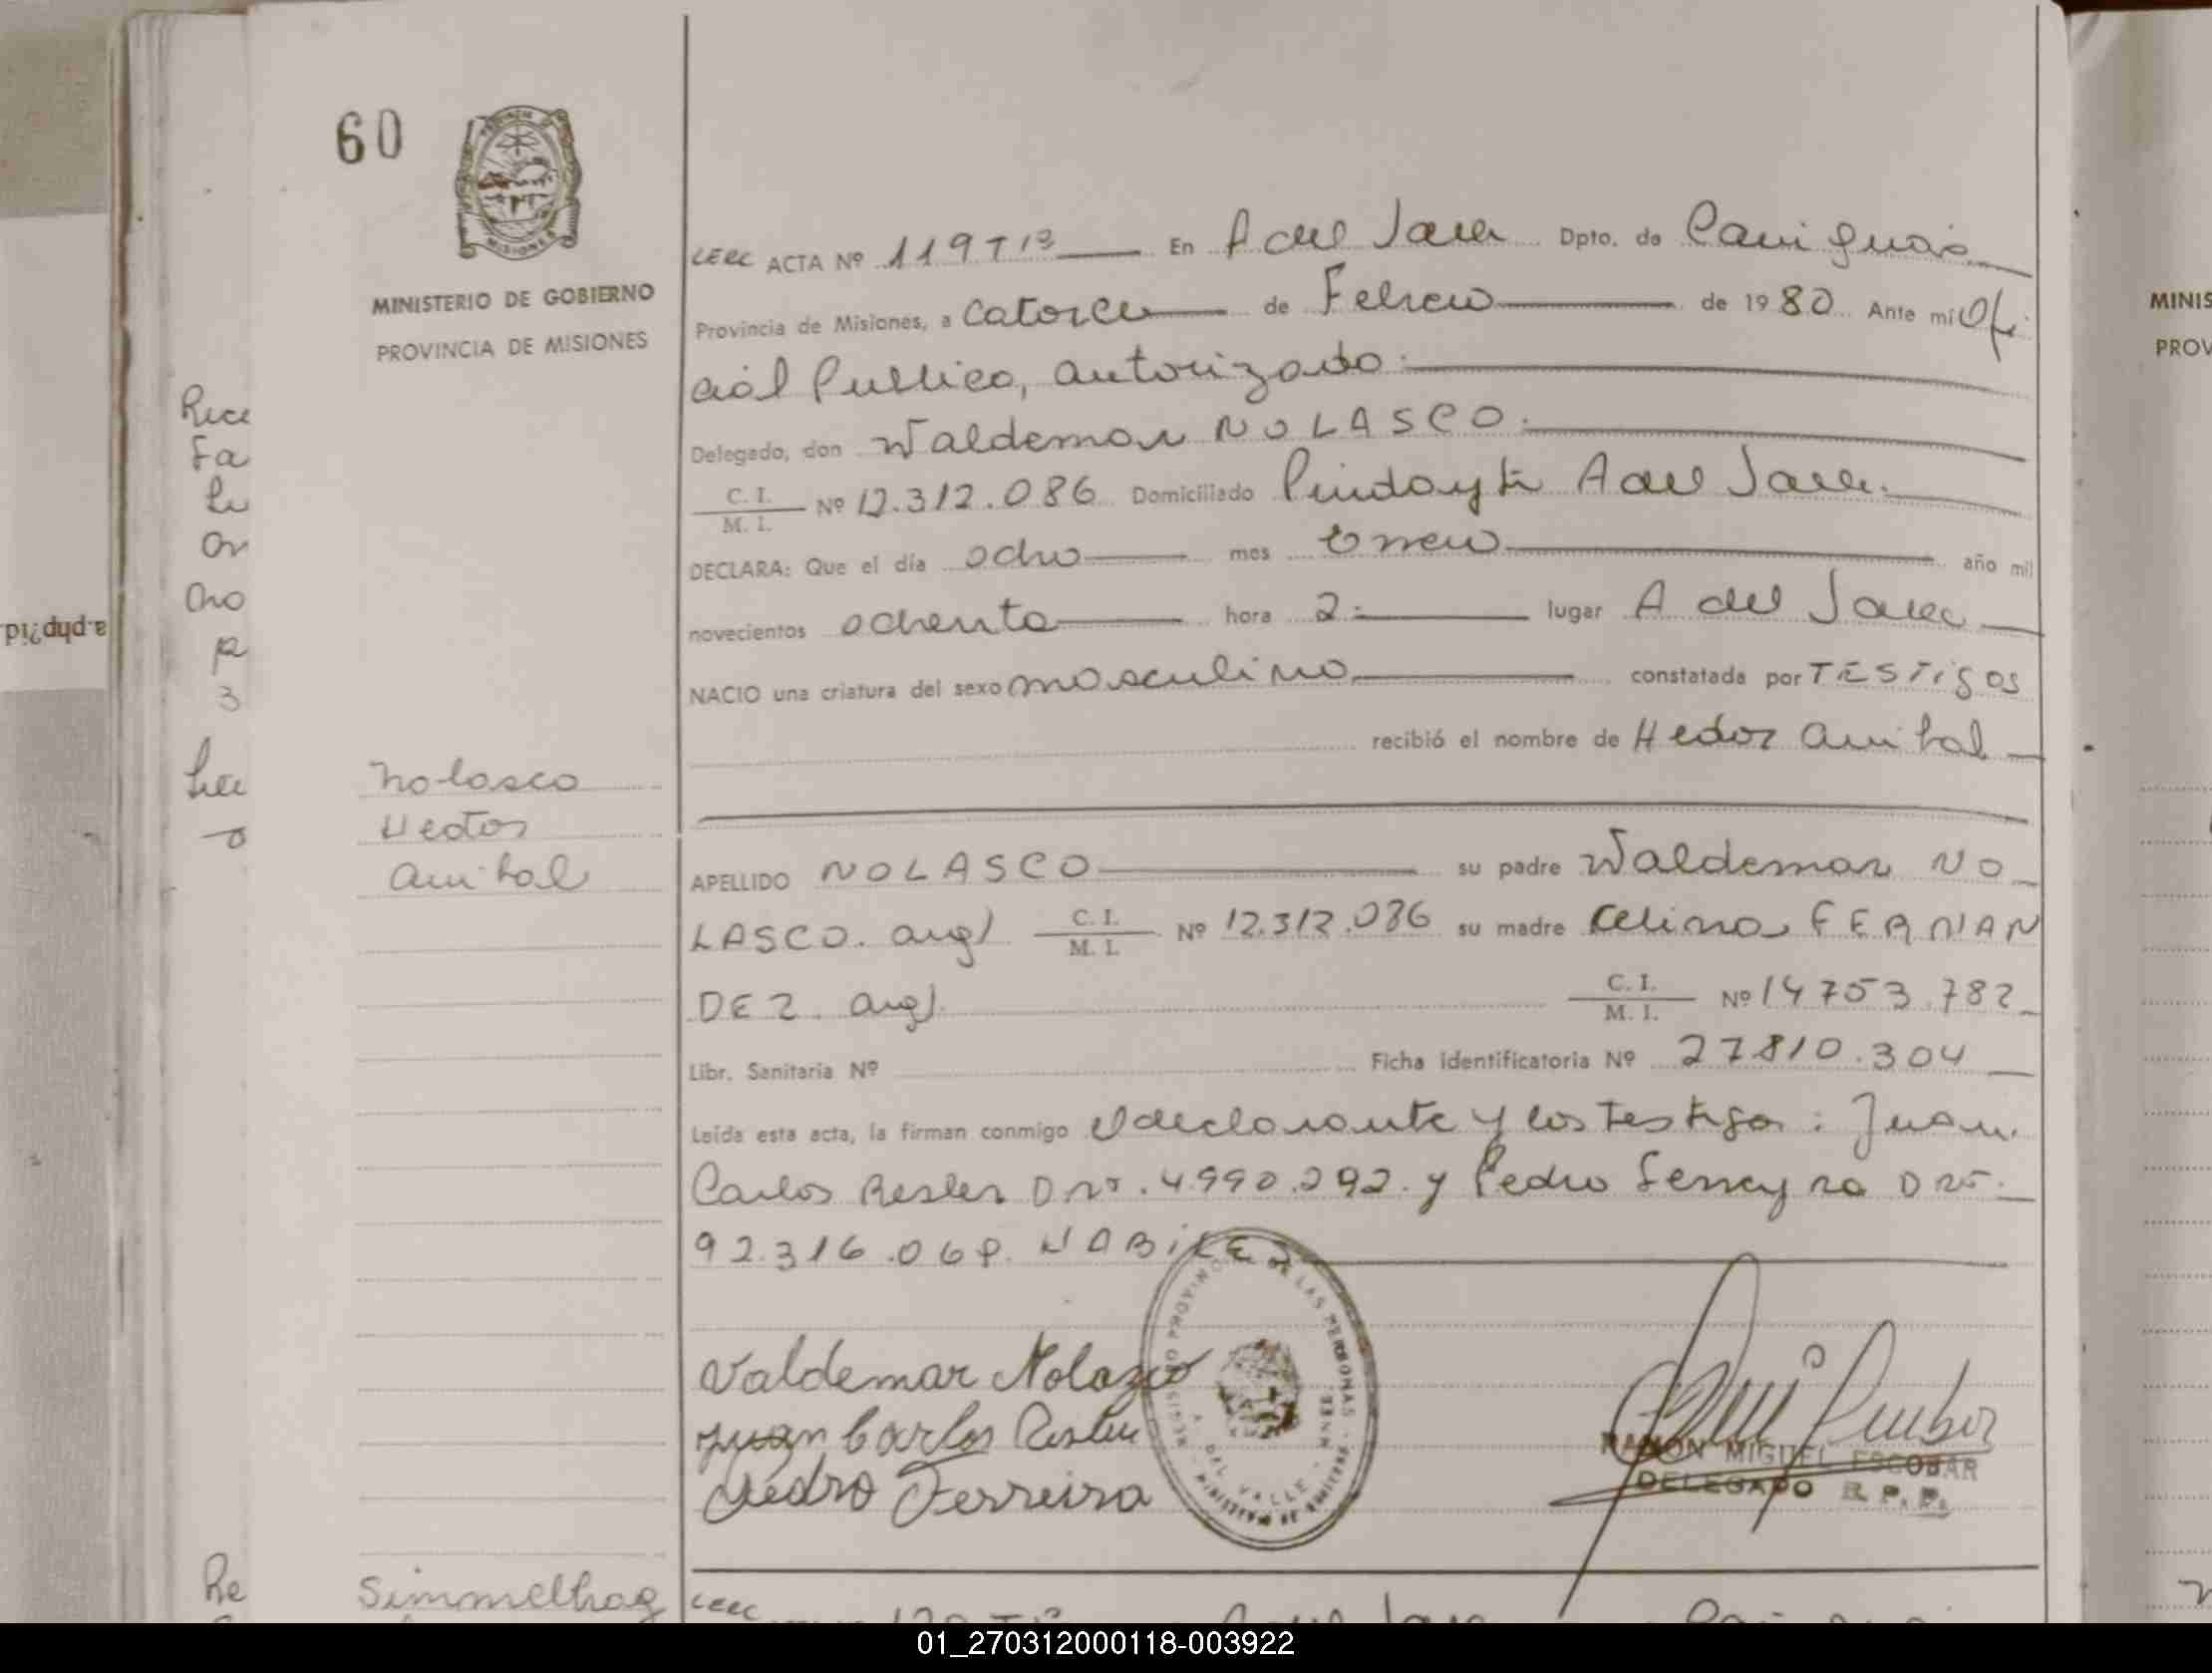 60
MINISTERIO DE GOBIERNO
PROVINCIA DE MISIONES
LERC ACTA Nº 119 Tº 1º En A del Valle Dpto. de Cainguás
Provincia de Misiones, a catorce de Febrero de 1980 Ante mi Ofi
cial Publico, autorizado.
Delegado, don Waldemar NOLASCO.
C. I.
M. I. Nº 12.312.086 Domiciliado Pindayti A del Valle.
DECLARA: Que el día ocho mes Enero año mil
novecientos ochenta hora 2 lugar A del Valle
NACIO una criatura del sexo masculino constatada por TESTigos
recibió el nombre de Hector Anibal
Nolasco
Hector
Anibal
APELLIDO NOLASCO su padre Waldemar NO
LASCO. arg) C. I. M. I. Nº 12.312.086 su madre Celina FERNAN
DEZ. arg). C. I. M. I. Nº 14753.782
Libr. Sanitaria Nº Ficha identificatoria Nº 27810.304
Leída esta acta, la firman conmigo el declarante y los testigos: Juan
Carlos Resler DNI. 4.990.292. y Pedro Ferreyra DNI.
92.316.068. HABILES
Valdemar Nolazco
Juan Carlos Resler
Pedro Ferreira
REGISTRO PROVINCIAL DE LAS PERSONAS
A. DEL VALLE
RAMON MIGUEL ESCOBAR
DELEGADO R. P. P.
Simmelhag
LERC
MINIS
PROV
Rece
Fa
a.php?id
01_270312000118-003922